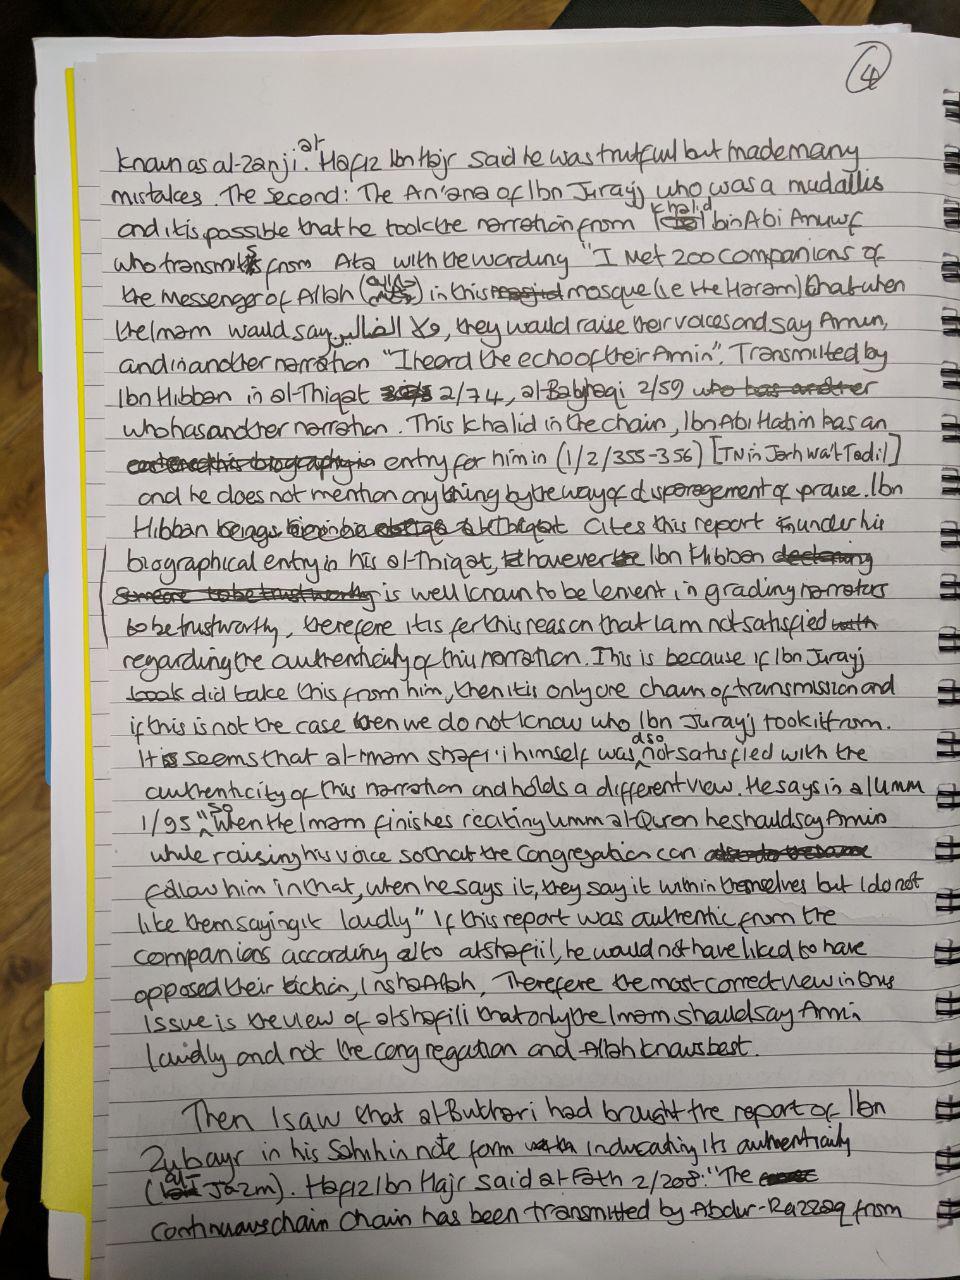 4
known as al-Zanji. al-Hafiz Ibn Hajr said he was trutful but made many
mistakes. The Second: The An'ana of Ibn Jurayj who was a mudallis
and it is possible that he took the narration from Khalid bin Abi Anuwf
who transmits from Ata with the wording "I Met 200 companions of
the messenger of Allah (ﷺ) in this masjid mosque (i.e the Haram) that when
the Imam would say ولا الضالين, they would raise their voices and say Amin,
and in another narration "I heard the echo of their Amin". Transmitted by
Ibn Hibban in al-Thiqat 2/74, al-Bayhaqi 2/59 who has another
who has another narration. This Khalid in the chain, Ibn Abi Hatim has an
entry for him in (1/2/355-356) [TN in Jarh wa't Tadil]
and he does not mention anything by the way of disparagement or praise. Ibn
Hibban cites this report under his
biographical entry in his al-Thiqat, however Ibn Hibban declaring
someone to be trustworthy is well known to be lenient in grading narrators
to be trustworthy, therefore it is for this reason that I am not satisfied with
regarding the authenticity of this narration. This is because if Ibn Jurayj
took did take this from him, then it is only one chain of transmission and
if this is not the case then we do not know who Ibn Jurayj took it from.
It seems that al-Imam Shafi'i himself was also not satisfied with the
authenticity of this narration and holds a different view. He says in al Umm
1/95 "so when the Imam finishes reciting Umm al-Quran he should say Amin
while raising his voice so that the congregation can
follow him in that, when he says it, they say it within themselves but I do not
like them saying it loudly" If this report was authentic from the
companions according to al shafiil, he would not have liked to have
opposed their action, InshaAllah, Therefore the most correct view in this
issue is the view of al shafili that only the Imam should say Amin
loudly and not the congregation and Allah knows best.
Then I saw that al-Bukhari had brought the report of Ibn
Zubayr in his Sahih in note form with inducating its authenticity
(al-Jazm). Hafiz Ibn Hajr said al Fath 2/208: "The
continuous chain chain has been transmitted by Abdur-Razzaq from